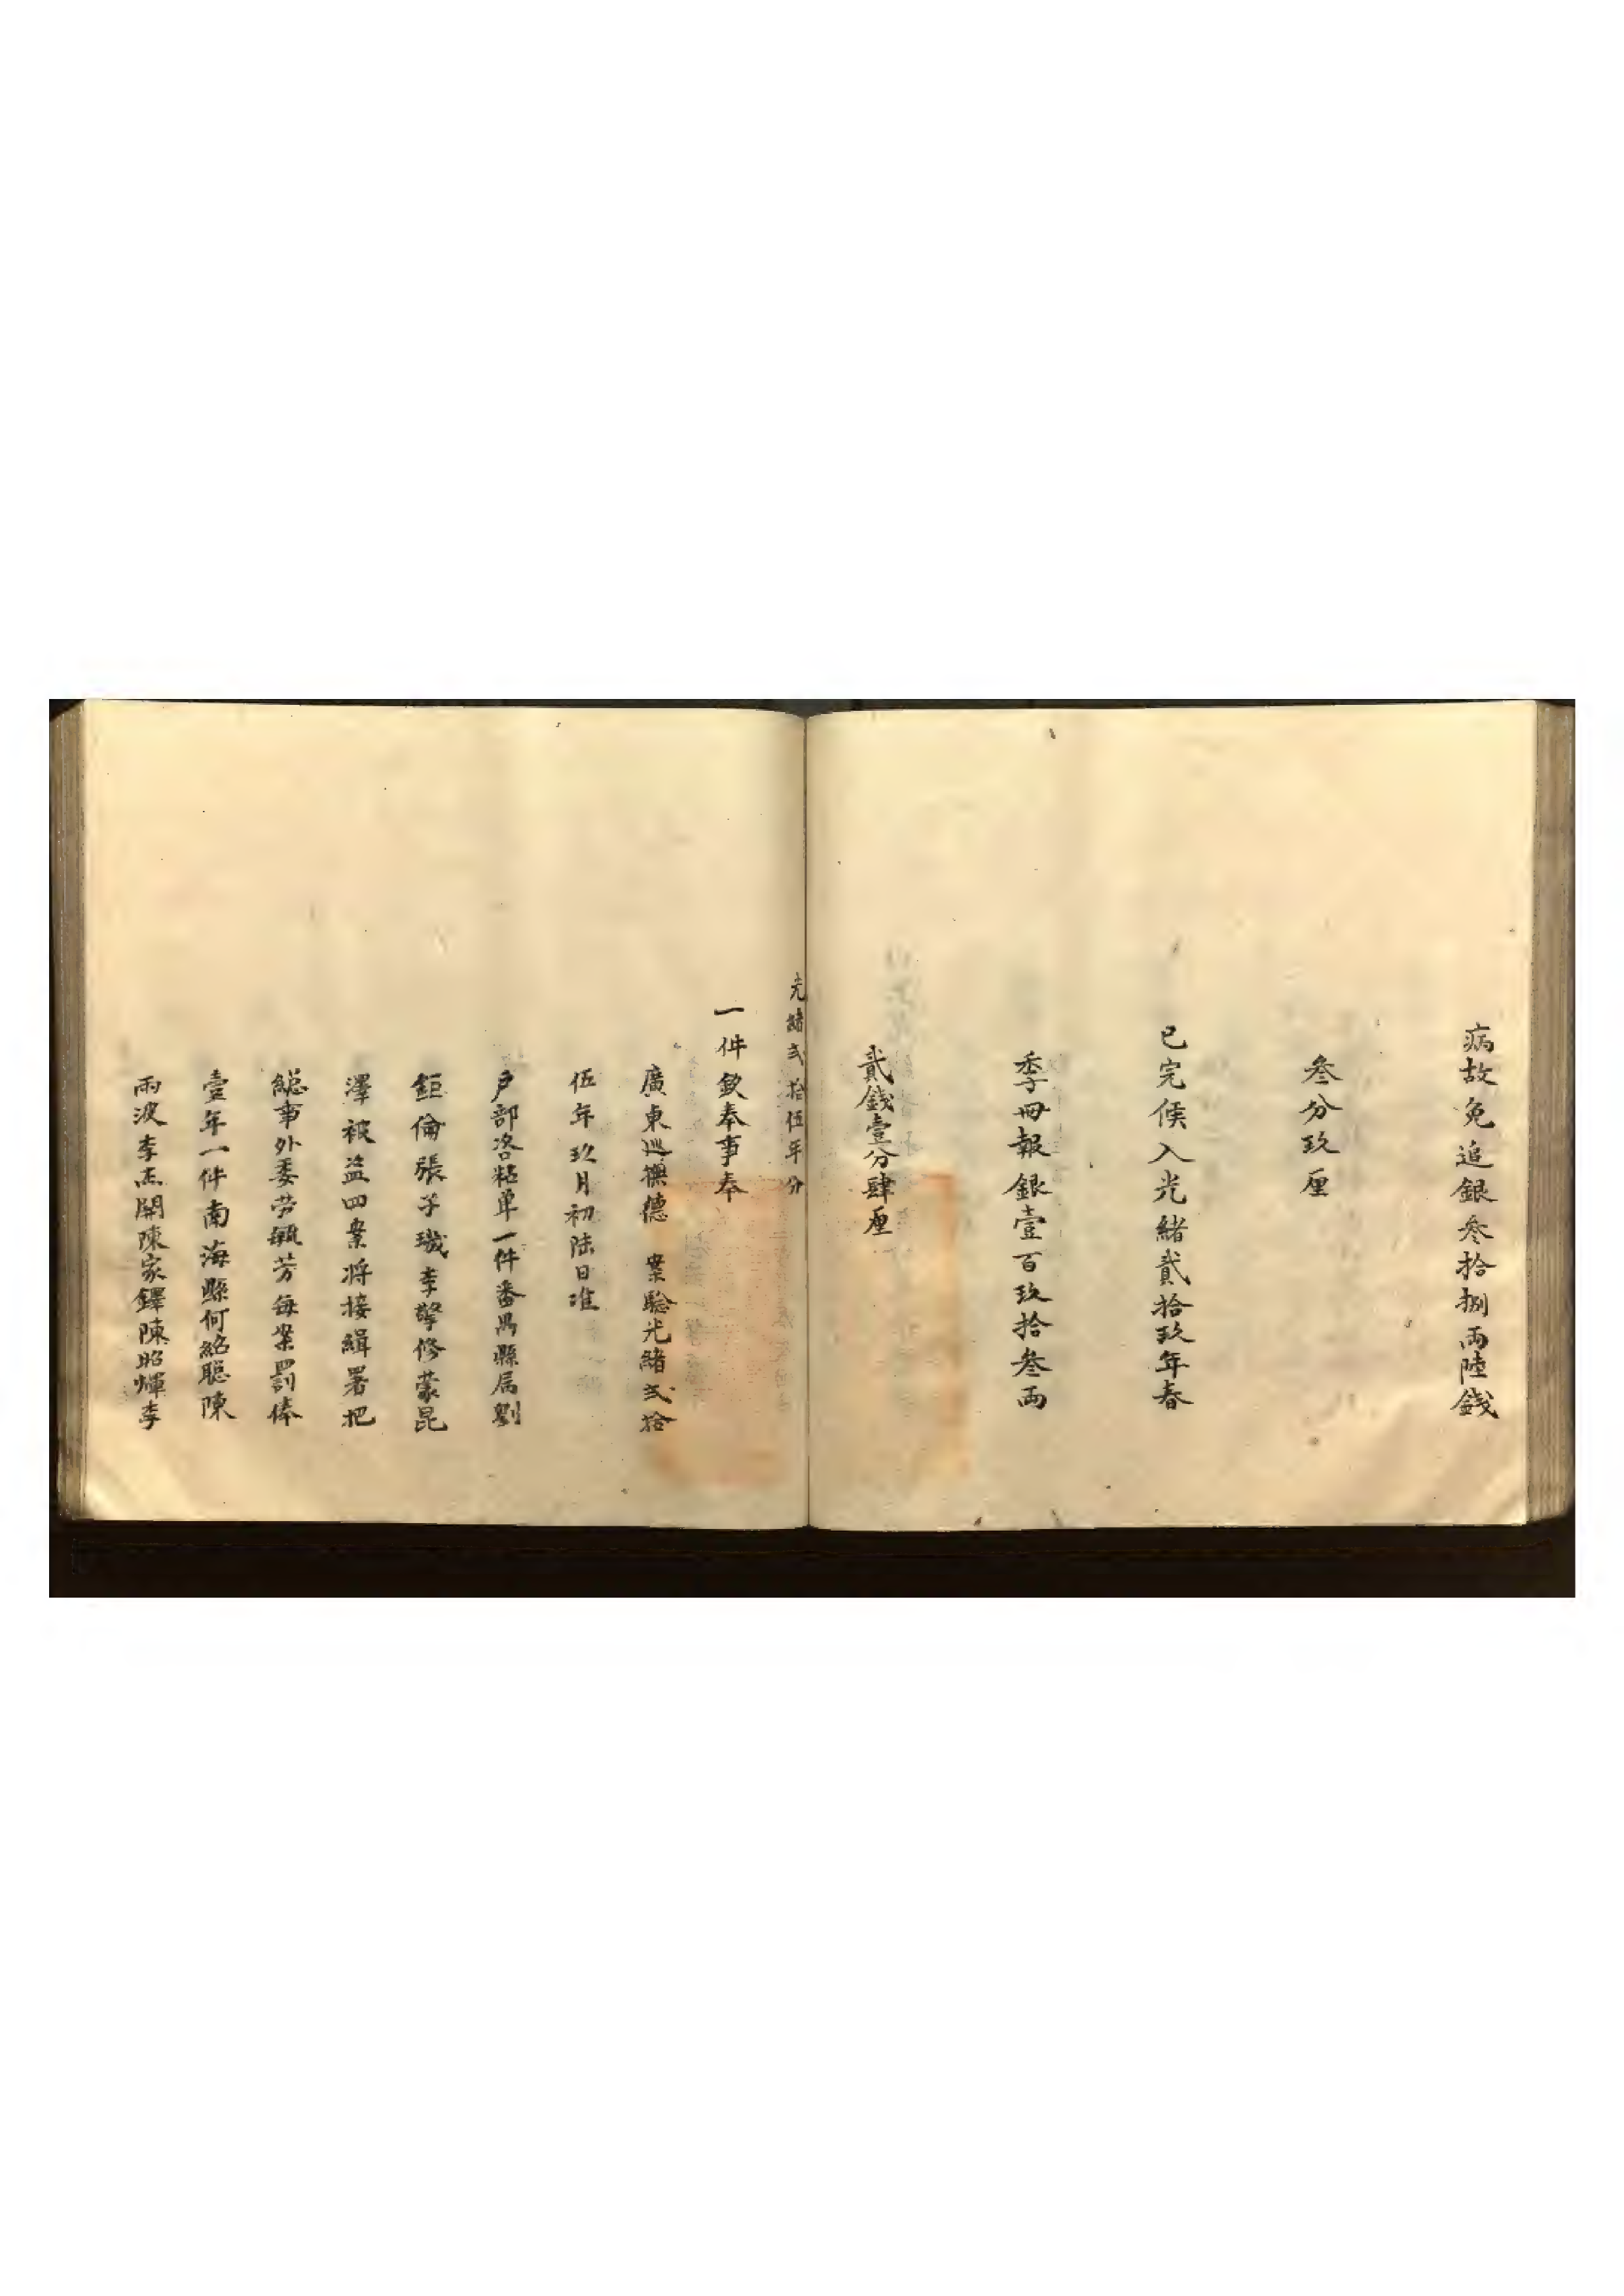 病故免追銀叁拾捌兩陸錢
叁分玖厘
已完候入光緒貳拾玖年春
季冊報銀壹百玖拾叁兩
貳錢壹分肆厘
光緒弍拾伍年分
一件欽奉事奉
廣東巡撫德 案驗光緒弍拾
伍年玖月初陸日准
户部咨粘单一件番禺縣属劉
鉅倫張子璣李擎修蒙昆
澤被盜四案将接緝署把
總事外委劳毓芳每案罰俸
壹年一件南海縣何紹聰陳
雨波李杰開陳家鐸陳昭煇李